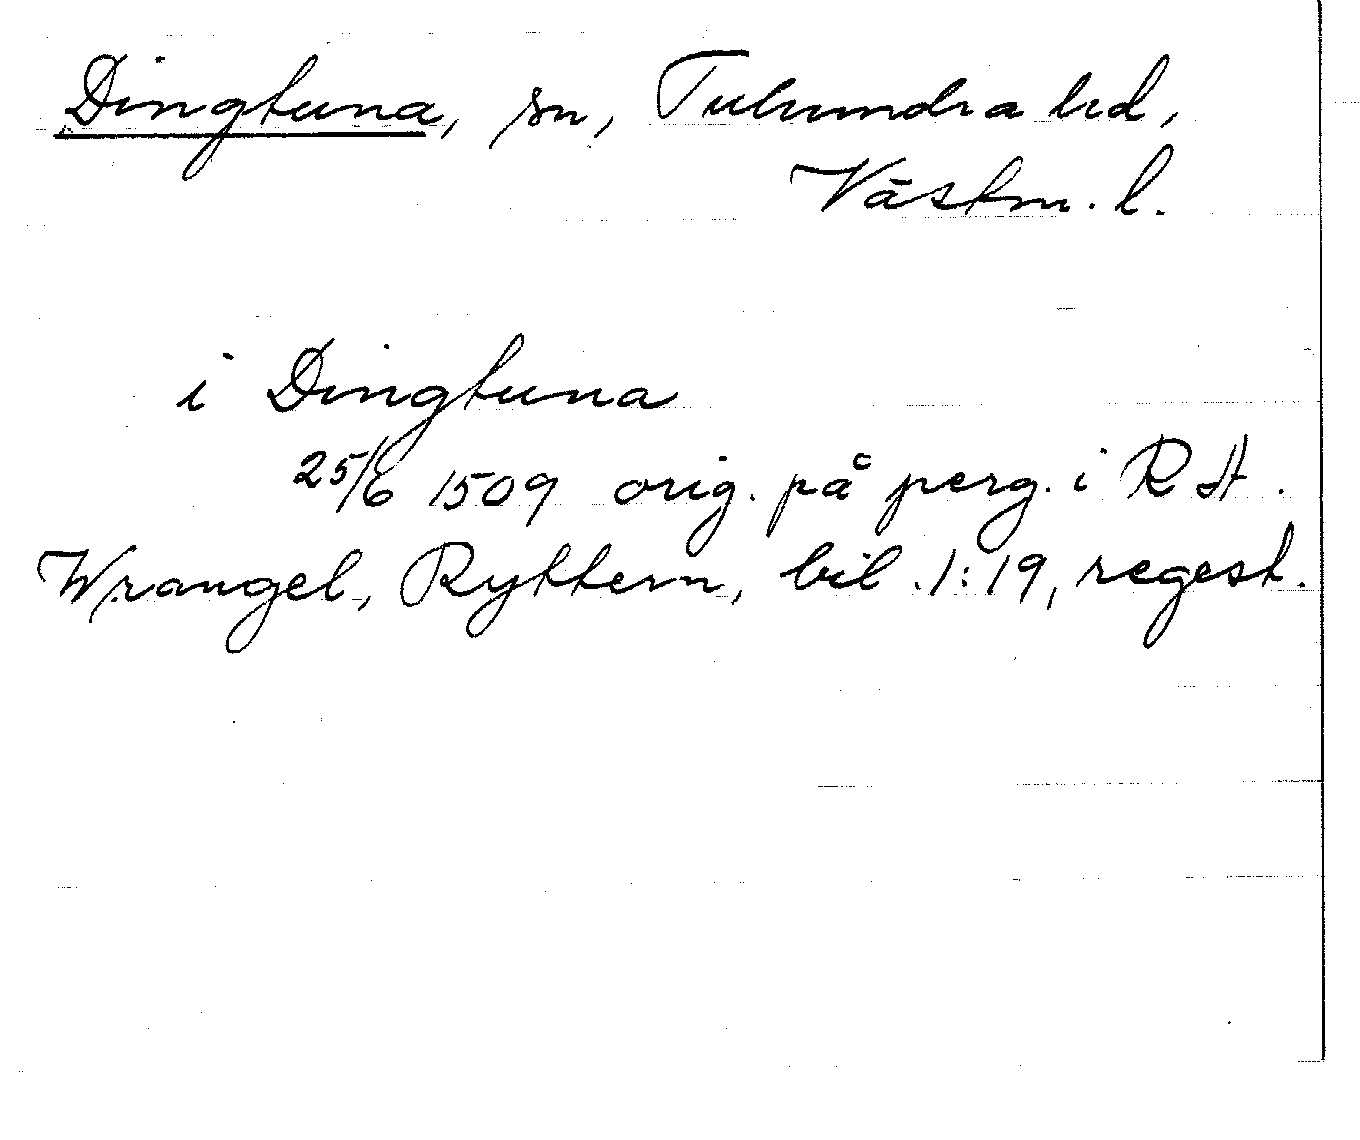 Dingtuna, sn, Tuhundra hd,
Västm. l.
i Dingtuna
25/6 1509 orig. på perg. i RA.
Wrangel, Ryttern, bil. 1:19, regest.